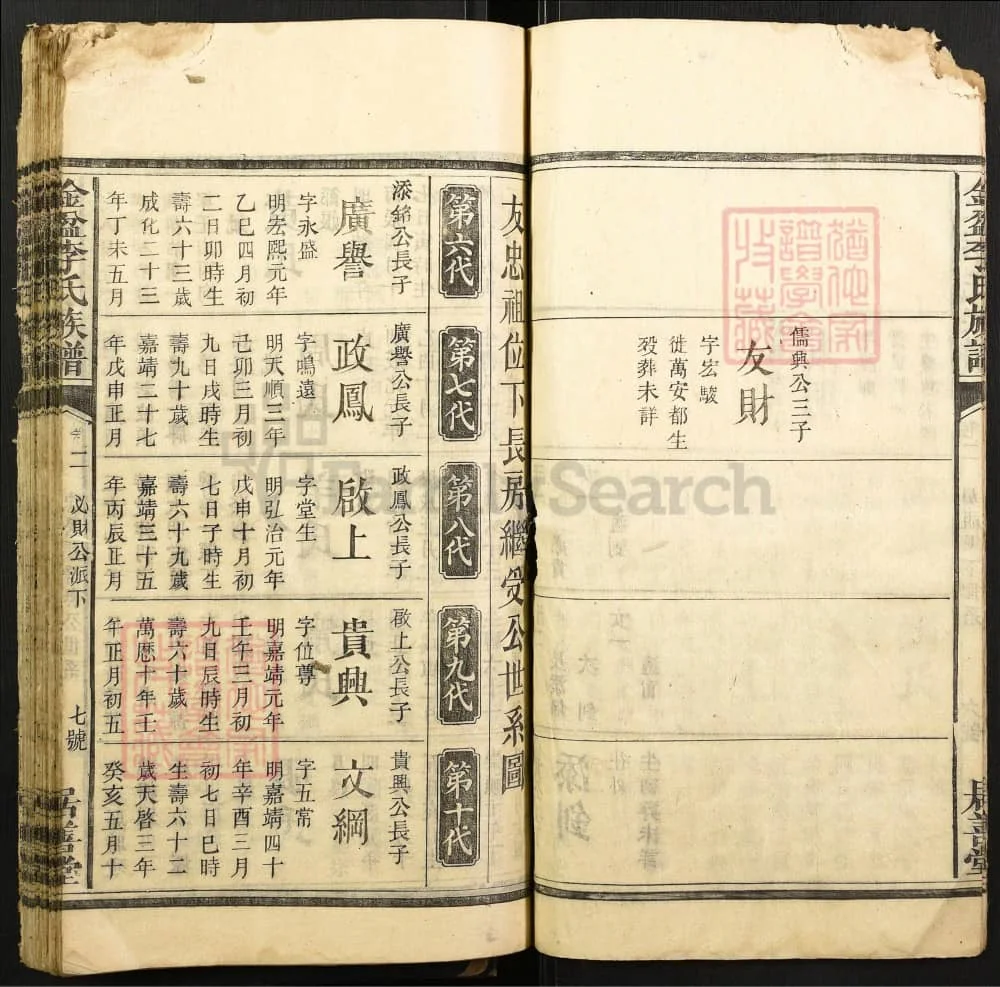 金盆李氏族譜
居善堂
儒興公三子
友財
字宏駿
徙萬安都生
歿葬未詳
友忠祖位下長房繼受公世系圖
第六代
第七代
第八代
第九代
第十代
添銘公長子
廣譽
字永盛
明宏熙元年
乙巳四月初
二日卯時生
壽六十三歲
成化二十三
年丁未五月
廣譽公長子
政鳳
字鳴遠
明天順三年
己卯三月初
九日戌時生
壽九十歲
嘉靖二十七
年戊申正月
政鳳公長子
啟上
字堂生
明弘治元年
戊申十月初
七日子時生
壽六十九歲
嘉靖三十五
年丙辰正月
啟上公長子
貴興
字位尊
明嘉靖元年
壬午三月初
九日辰時生
壽六十歲
萬曆十年壬
午正月初五
貴興公長子
文綱
字五常
明嘉靖四十
年辛酉三月
初七日巳時
生壽六十二
歲天啓三年
癸亥五月十
金盆李氏族譜
卷二
必財公派下
七號
居善堂
FamilySearch